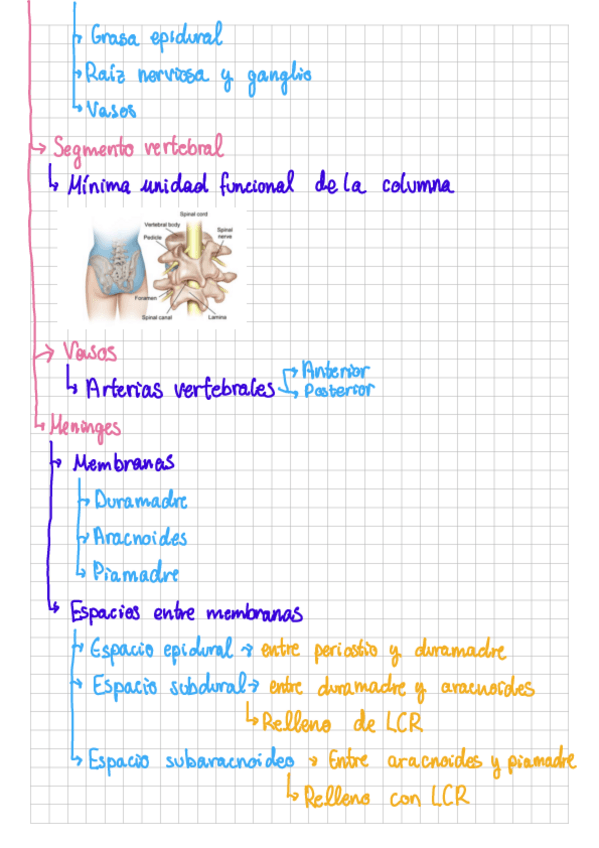 Grasa epidural
Raíz nerviosa y ganglio
Vasos
Segmento vertebral
Mínima unidad funcional de la columna
Spinal cord
Vertebral body
Spinal nerve
Pedicle
Foramen
Spinal canal
Lamina
Vasos
Arterias vertebrales
Anterior
Posterior
Meninges
Membranas
Duramadre
Aracnoides
Piamadre
Espacios entre membranas
Espacio epidural → entre periostio y duramadre
Espacio subdural → entre duramadre y aracnoides
Relleno de LCR
Espacio subaracnoideo → Entre aracnoides y piamadre
Relleno con LCR